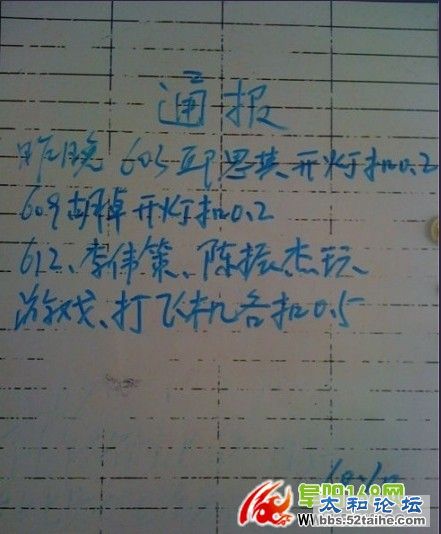 通报
昨晚 605 邱思其开灯扣0.2
609 胡棹开灯扣0.2
612、李伟策、陈振杰玩
游戏、打飞机各扣0.5
阜阳168网
太和论坛
bbs.52taihe.com